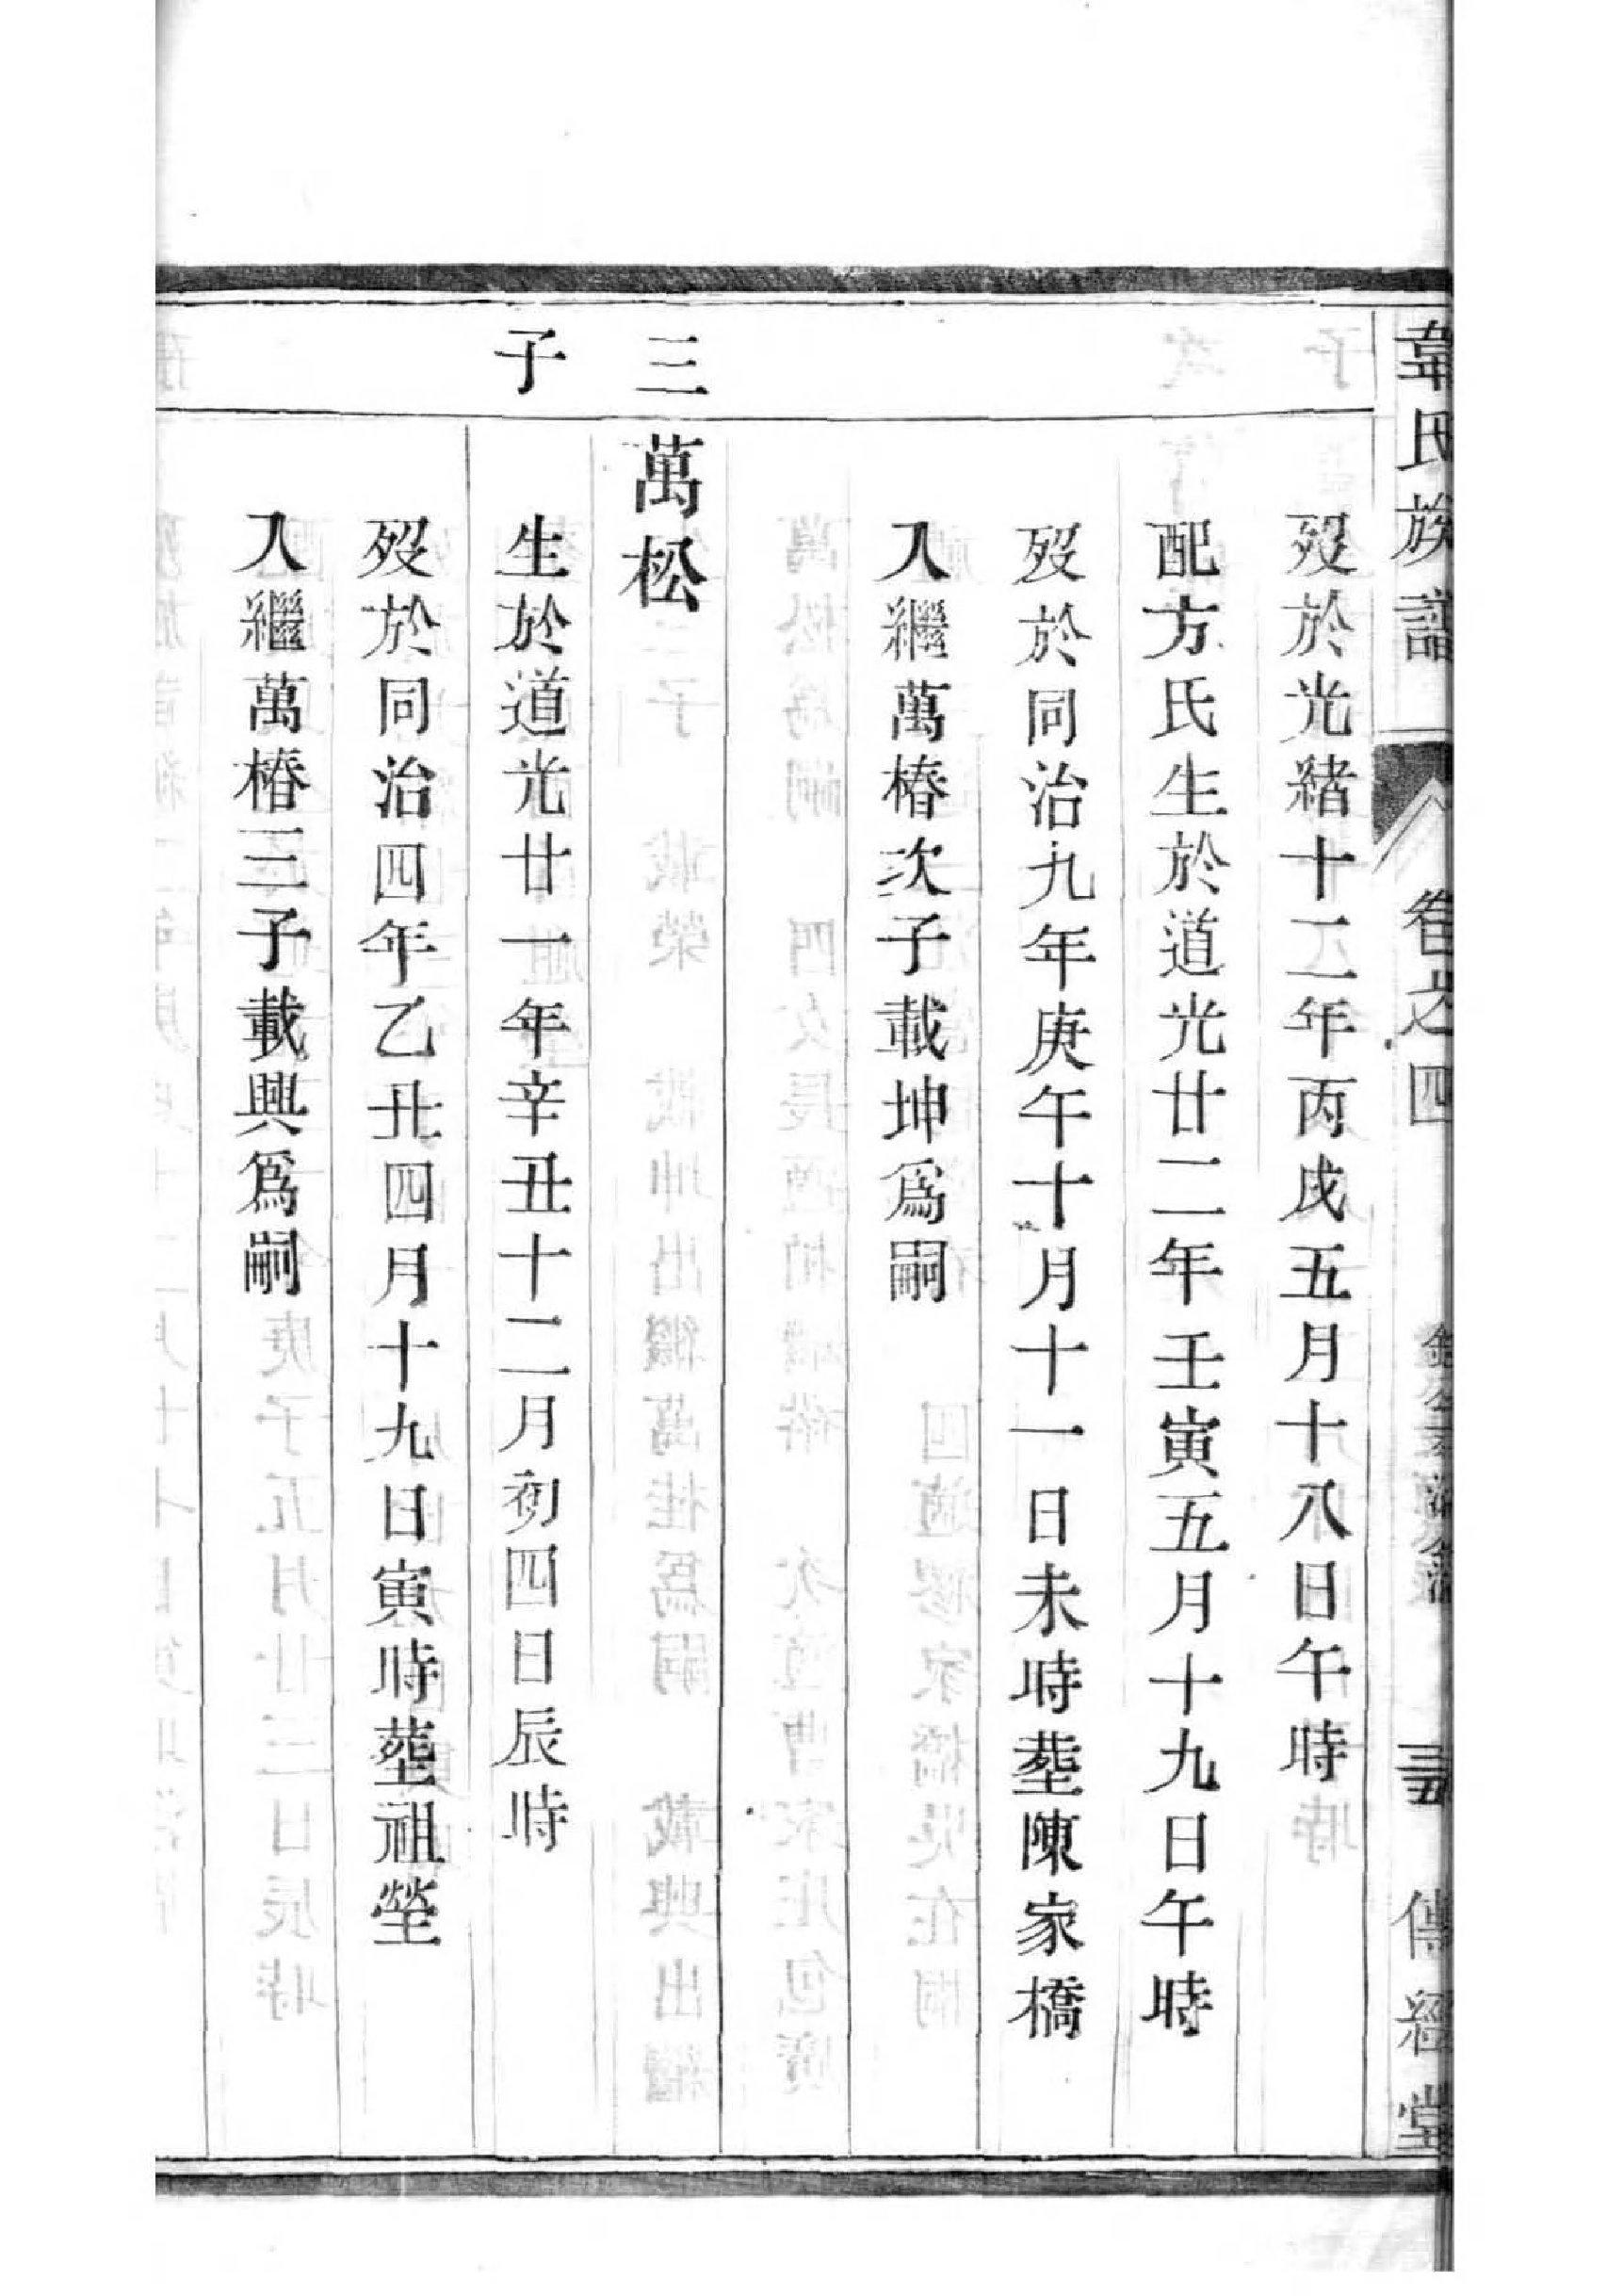 韋氏族譜 卷之四 傳經堂
歿於光緒十二年丙戌五月十八日午時
配方氏生於道光廿二年壬寅五月十九日午時
歿於同治九年庚午十月十一日未時塟陳家橋
入繼萬椿次子載坤爲嗣
三子
萬松
生於道光廿一年辛丑十二月初四日辰時
歿於同治四年乙丑四月十九日寅時塟祖塋
入繼萬椿三子載興爲嗣